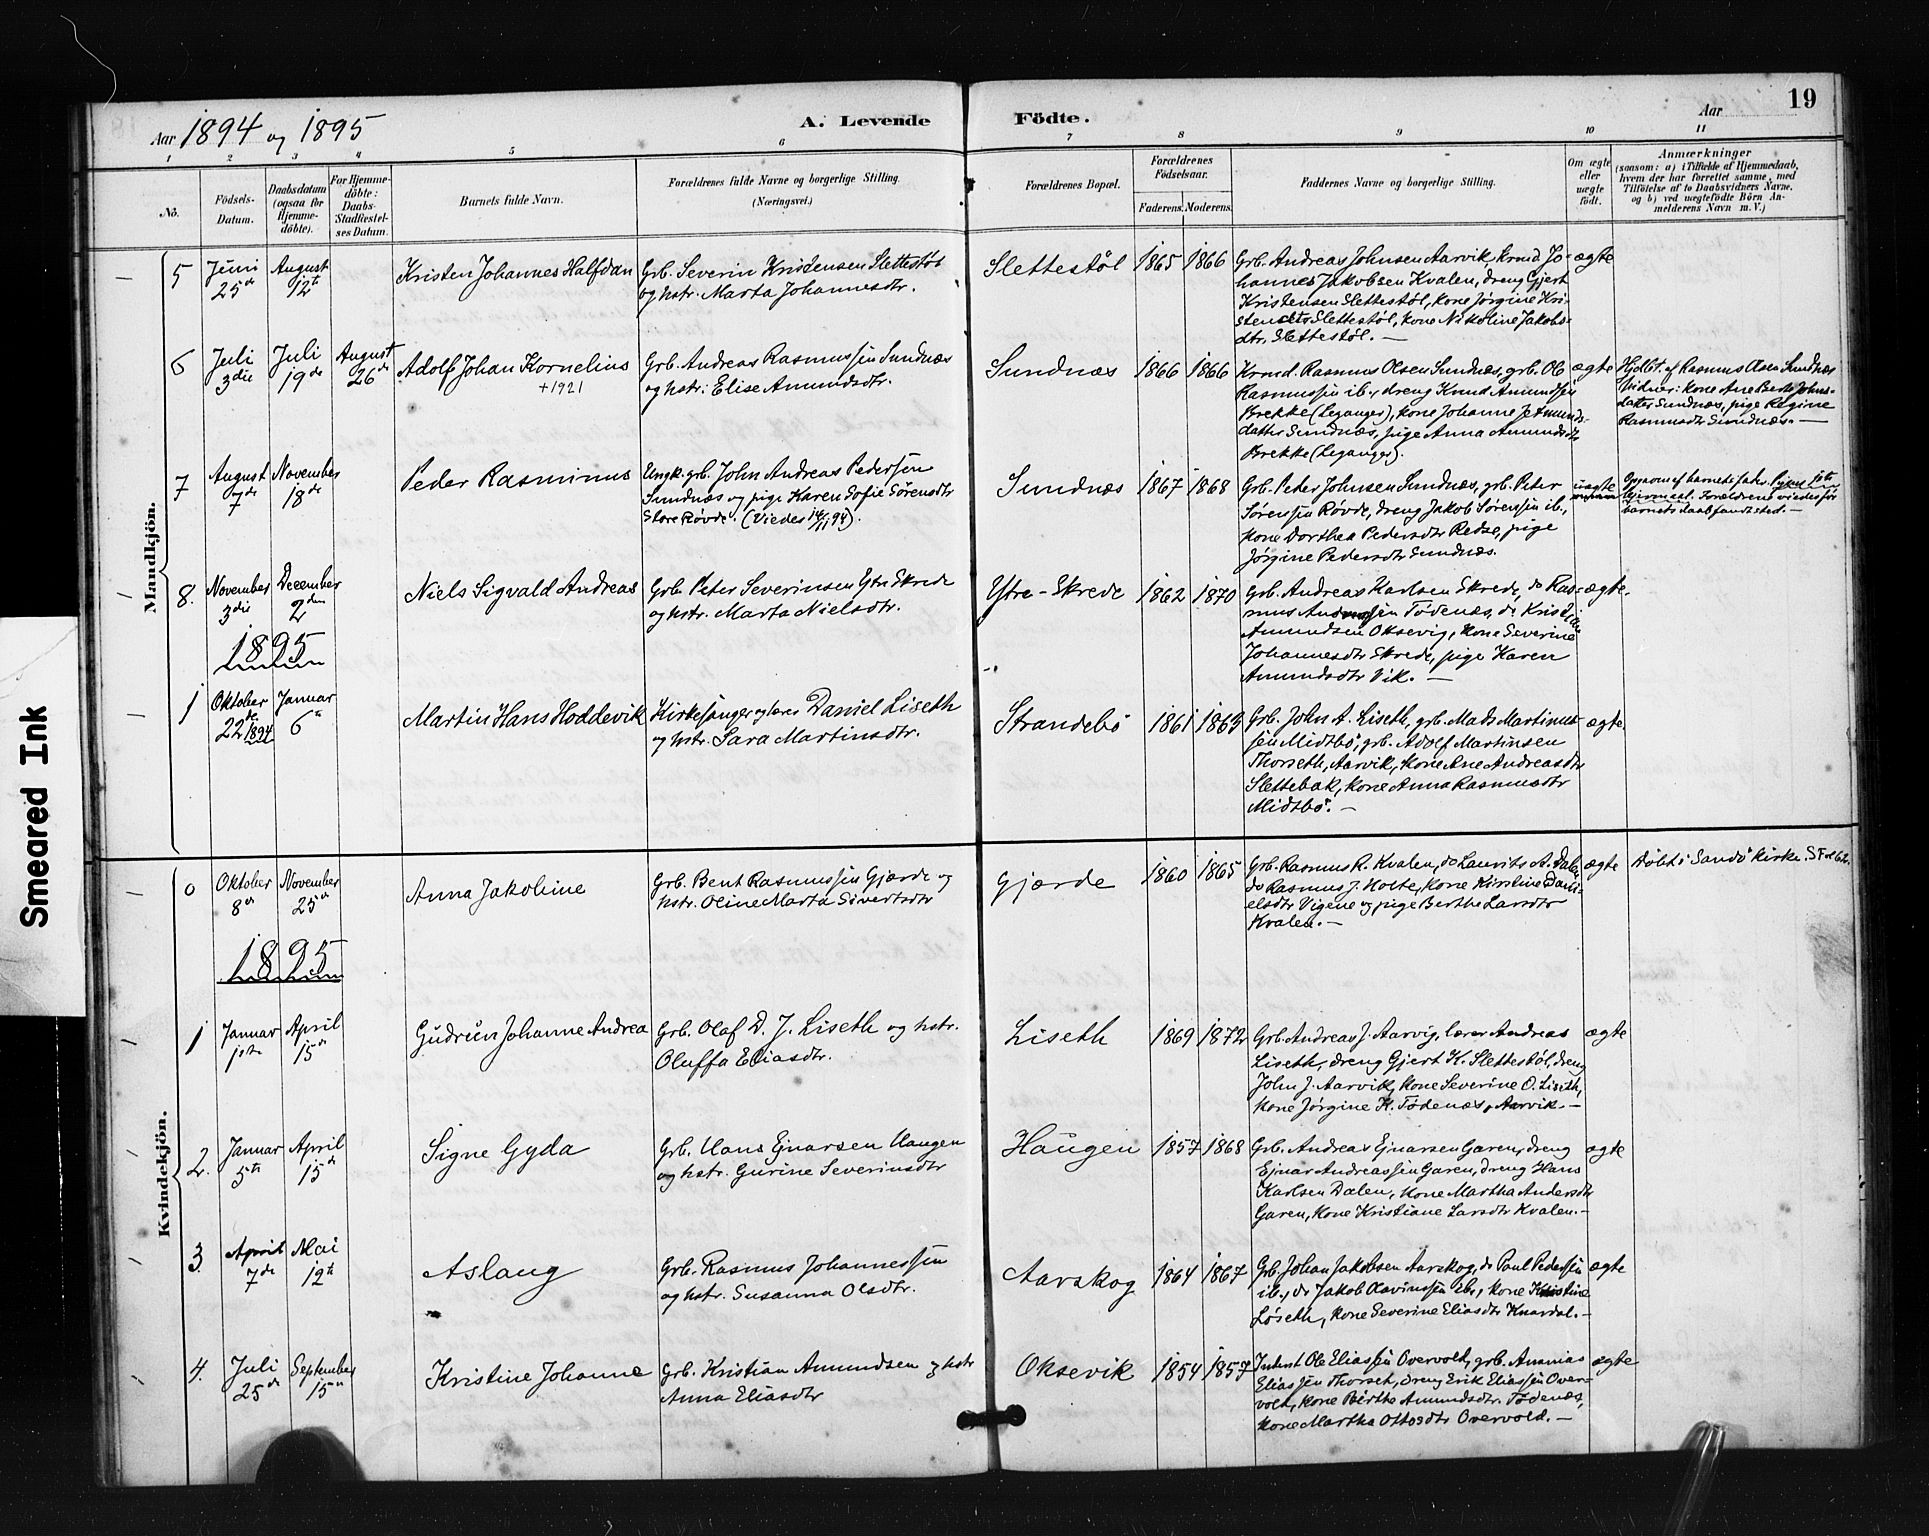 Smeared Ink
Aar 1894 og 1895
A. Levende Födte.
Aar
19
1 2 3 4 5 6 7 8 9 10 11
Nö.
Födsels-
Datum.
Daabsdatum
(ogsaa for
Hjemme-
döbte).
For Hjemme-
döbte:
Daabs-
Stadfæstel-
ses Datum.
Barnets fulde Navn.
Forældrenes fulde Navne og borgerlige Stilling.
(Næringsvei.)
Forældrenes Bopæl.
Forældrenes
Födselsaar.
Faderens. Moderens.
Faddernes Navne og borgerlige Stilling.
Om ægte
eller
uægte
födt.
Anmærkninger
(saasom: a) i Tilfælde af Hjemmedaab,
hvem der har forrettet samme, med
Tilföielse af to Daabsvidners Navne,
og b) ved uægtefödte Börn An-
melderens Navn m. V.)
Mandkjön.
5
Juni
25de
August
12te
Kristen Johannes Halfdan
Grb. Severin Kristensen Slettestøl
og hstr. Marta Johannesdtr.
Slettestøl
1865
1866
Grb. Andreas Johnsen Aarvik, krmd Jo-
hannes Jakobsen Kvalen, dreng Gjert
Kristensen Slettestøl, kone Jørgine Kri-
stensdtr Slettestøl, kone Nikoline Jakobs-
dtr. Slettestøl. —
ægte
6
Juli
3die
Juli
19de
August
26de
Adolf Johan Kornelius
+1921
Grb. Andreas Rasmussen Sundnæs
og hstr: Elise Amundsdtr.
Sundnæs
1866
1866
Krmd. Rasmus Olsen Sundnæs, grb. Ole
Rasmussen ib., dreng Knud Amundsen
Brekke (Leganger), kone Johanne J. Amunds-
datter Sundnæs, pige Anna Amundsdtr
Brekke (Leganger).
ægte
Hjdbt. af Rasmus Olsen Sundnæs
Vidner: kone Ane Berte Johns-
datter Sundnæs, pige Regine
Rasmusdtr Sundnæs. —
7
August
7de
November
18de
Peder Rasminus
Ungk. grb. John Andreas Pedersen
Sundnæs og pige Karen Sofie Sörensdtr
Store Røvde. (Viedes 14/11 94).
Sundnæs
1867
1868
Grb. Peter Johnsen Sundnæs, grb. Peter
Sørensen Røvde, dreng Jakob Sørensen ib.,
kone Dorthea Pedersdtr Redse, pige
Jørgine Pedersdtr Sundnæs.
uægte
Opgivns af barnets fader. Piges 1ste
Leiermaal. Forældrene viedes før
barnets daab fandt sted. —
8.
November
3die
December
2den
Niels Sigvald Andreas
Grb. Peter Severinsen Ytre Skrede
og hstr. Marta Nielsdtr.
Ytre-Skrede
1862
1870
Grb. Andreas Karlsen Skrede, do Ras-
mus Andreassen Tödenæs, do Kristian
Amundsen Oksevig, kone Severine
Johannesdtr Skrede, pige Karen
Amundsdtr Vik. —
ægte.
1895
1
Oktober
22de 1894
Januar
6te
Martin Hans Hoddevik
Kirkesanger og lærer Daniel Liseth
og hstr. Sara Martinsdtr.
Strandebö
1861
1863
Grb. John A. Liseth, grb. Mads Martinus-
sen Midtbö, grb. Adolf Martinsen
Thorseth, Aarvik, kone Ane Andreasdtr
Slettebak, kone Anna Rasmusdtr
Midtbö. —
ægte.
Kvindekjön.
Oktober
8de
November
25de
Anna Jakobine
Grb. Bent Rasmussen Gjærde og
hstr. Oline Marta Sivertsdtr
Gjærde
1860
1865
Grb. Rasmus R. Kvalen, do Laurits A. Dalen
do Rasmus J. Holte, kone Kirstine Dani-
elsdtr Vigene og pige Berthe Larsdtr
Kvalen. —
ægte
Döbt i Sandö Kirke. S Fol 62.
1895
1
Januar
1ste
April
15de
Gudrun Johanne Andrea
Grb. Olaf D. J. Liseth og hstr.
Oluffa Eliasdtr.
Liseth
1869
1872
Grb. Andreas J. Aarvig, lærer Andreas
Liseth, dreng Gjert K. Slettestøl, dreng
John J. Aarvik, kone Severine O. Liseth,
kone Jørgine K. Tödenæs, Aarvik. —
ægte
2.
Januar
5te
April
15de
Signe Gyda
Grb. Hans Ejnarsen Haugen
og hstr. Gurine Severinsdtr
Haugen
1857
1868
Grb. Andreas Ejnarsen Garen, dreng
Ejnar Andreassen Garen, dreng Hans
Karlsen Dalen, kone Martha Andersdtr
Garen, kone Kristiane Larsdtr Kvalen. —
ægte
3.
April
7de
Mai
12te
Aslaug
Grb. Rasmus Johannessen
og hstr. Susanna Olsdtr.
Aarskog
1864
1867
Grb. Johan Jakobsen Aarskog, do Paul Pedersen
ib., do Jakob Olavinssen ib., kone Kristine
Løseth, kone Severine Eliasdtr Knardal. —
ægte
4.
Juli
25de
September
15de
Kristine Johanne
Grb. Kristian Amundsen og hstr
Anna Eliasdtr
Oksevik
1854
1857
Inderst Ole Eliassen Overvold, grb. Ananias
Eliassen Thorset, dreng Erik Eliassen Over-
vold, kone Berthe Amundsdtr. Tödenæs,
kone Martha Ottosdtr Overvold. —
ægte